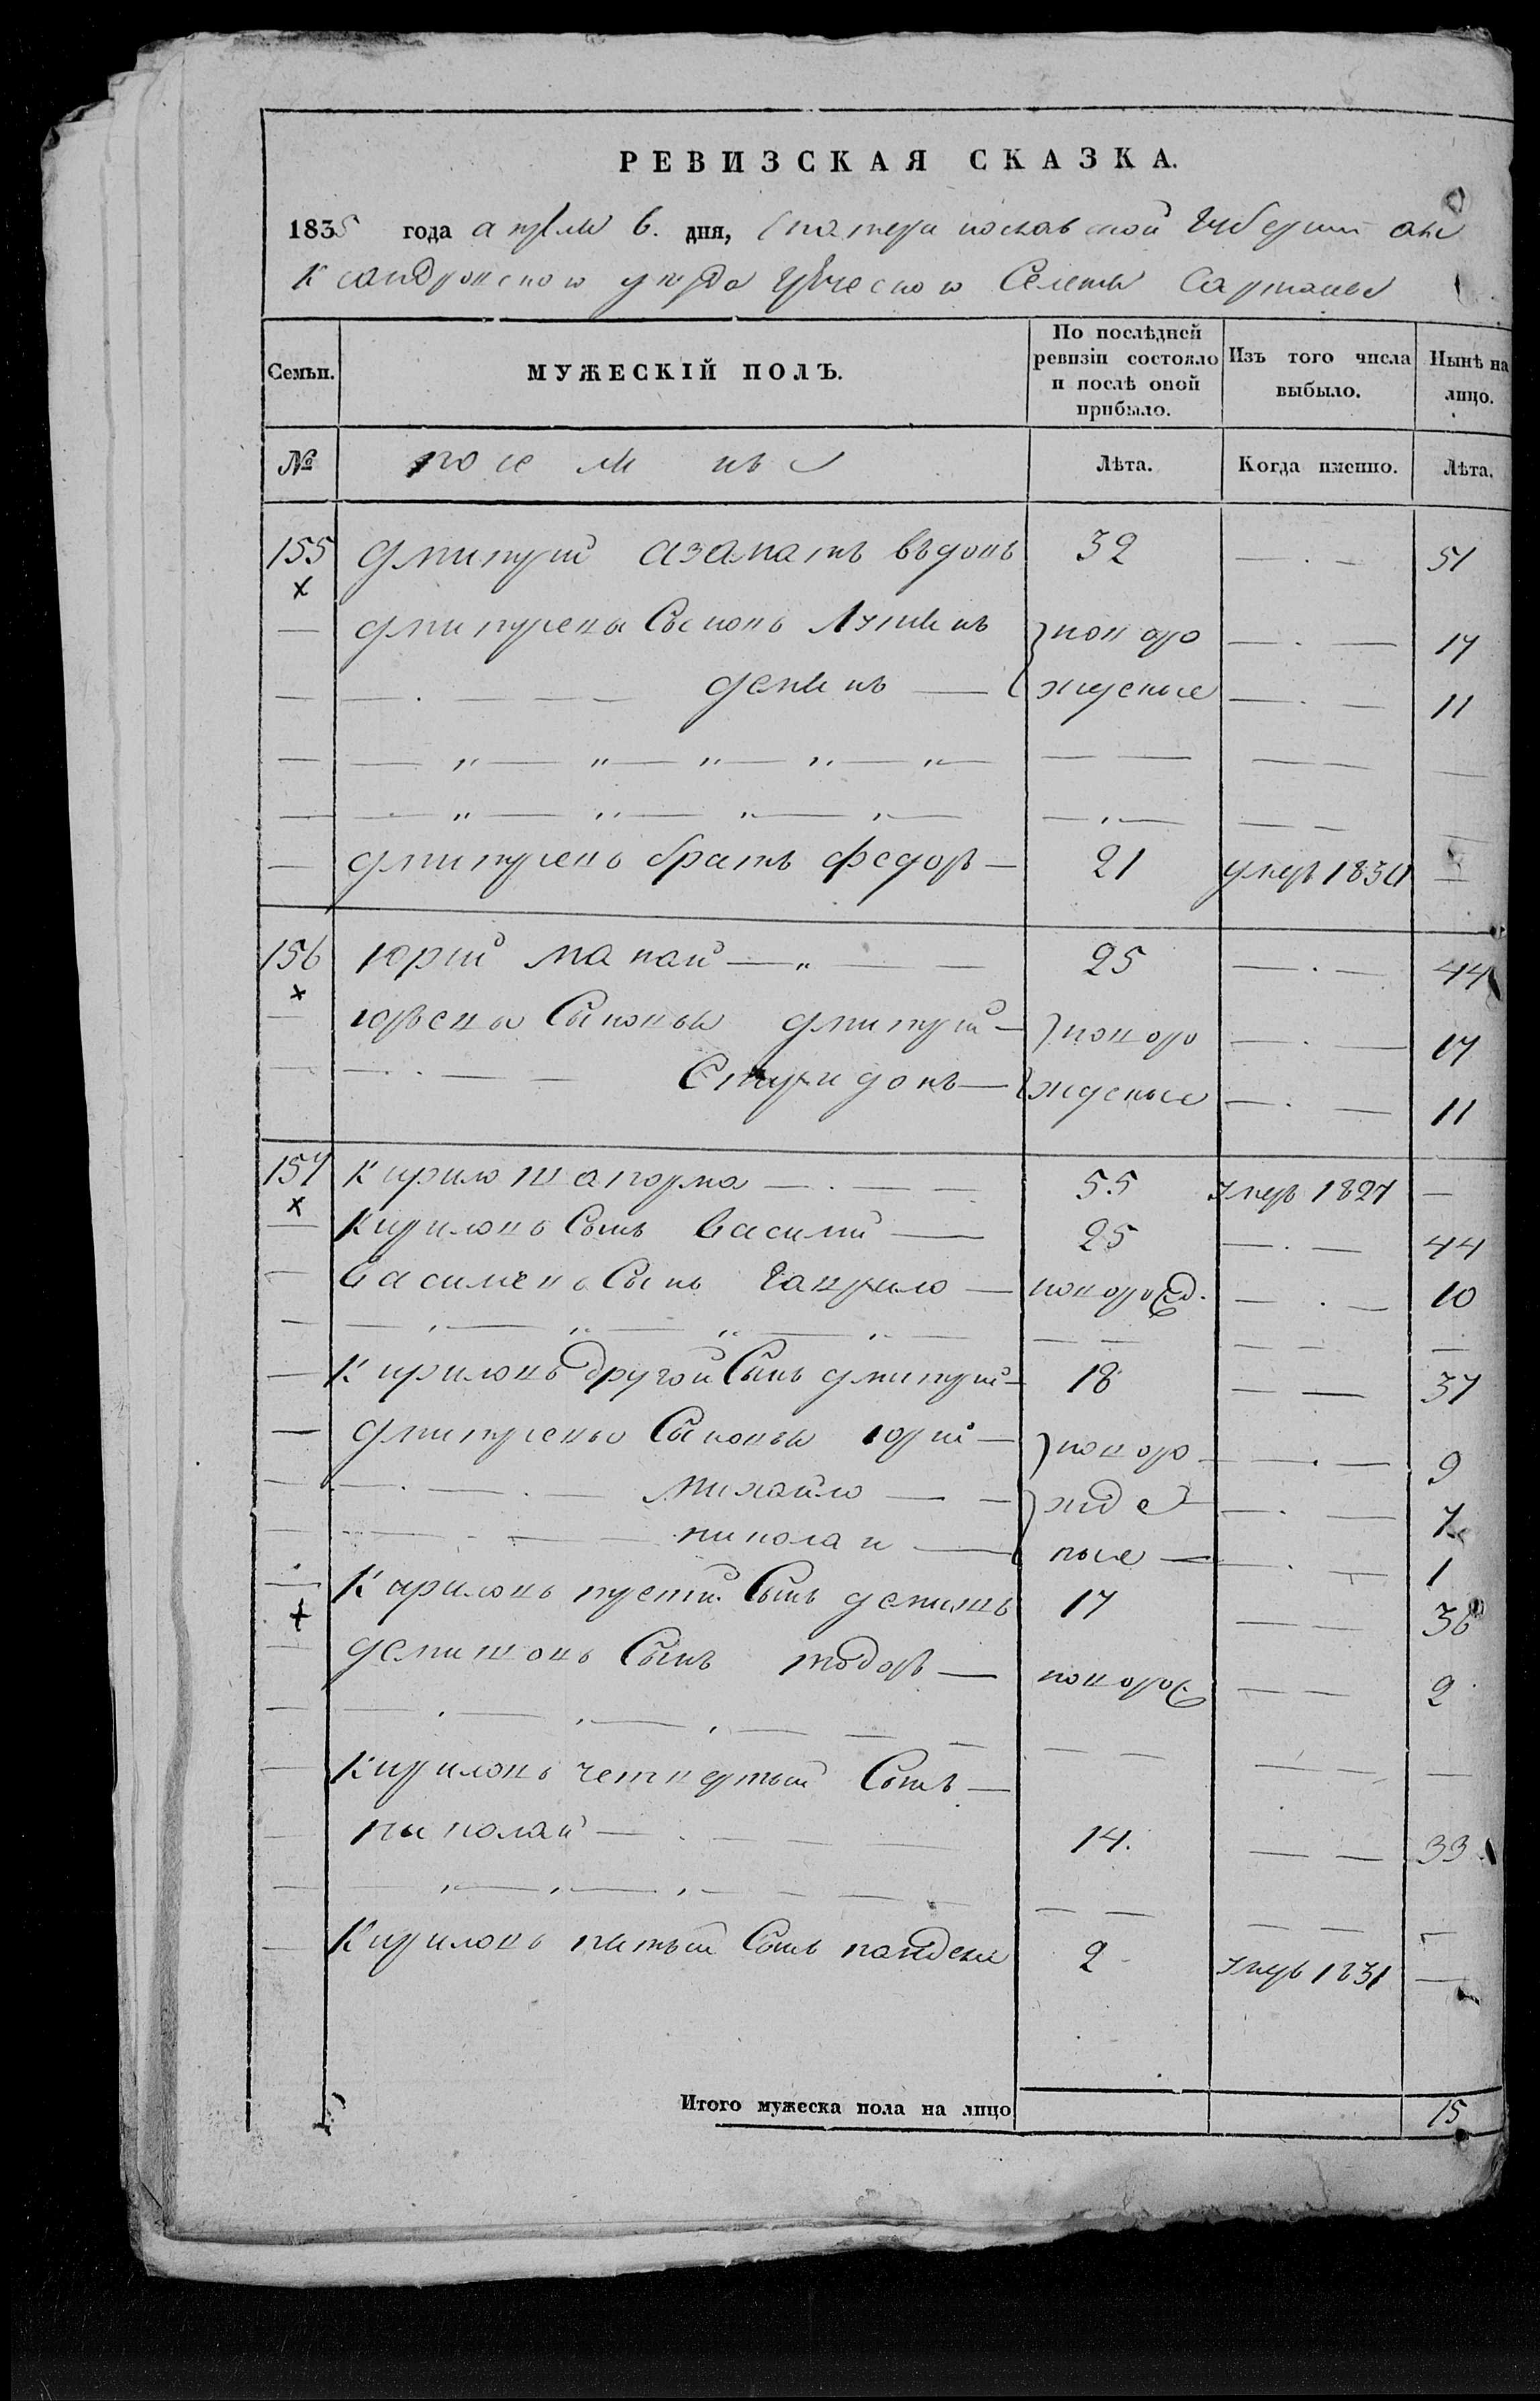 РЕВИЗСКАЯ СКАЗКА.
1835 года апреля 6. дня, Екатеринославской Губернии Але
ксандровского уезда Греческого Селения Сартаны
Семьи.
МУЖЕСКІЙ ПОЛЪ.
По послѣдней ревизіи состояло и послѣ оной прибыло.
Изъ того числа выбыло.
Нынѣ на лицо.
№ поселяне Лѣта. Когда именно. Лѣта.
155 дмитрий азаматъ 32 — . — 51
дмитриевы Сыновь новоро — . — 17
— . — — — новорожденые — . — 11
дмитриевъ братъ федоръ — 21 умеръ 1834 —
156 юрий — „ — — 25 — . — 44
юрьевы Сыновья дмитрий — новоро — . — 17
— . . — — Спиридонъ — жденые — . — 11
157 кирило шапорма — . — — 55 умеръ 1827 —
кириловъ Сынъ Василий — 25 — . — 44
василиевъ Сынъ гаврило — новорожд. — . — 10
кириловъ другой Сынъ дмитрий — 18 — — 37
дмитриевы Сыновья юрий — новоро — . — 9
— . — . — михайло — — жде — . — 7
— . — — николай — ные — — . — 1
кириловъ третий Сынъ 17 — — 36
Сынъ тодоръ — новорож — — 2
кириловъ четвертый Сынъ —
николай — . — — — 14. — — 33
кириловъ пятый Сынъ 2 умеръ 1831 —
Итого мужеска пола на лицо 15